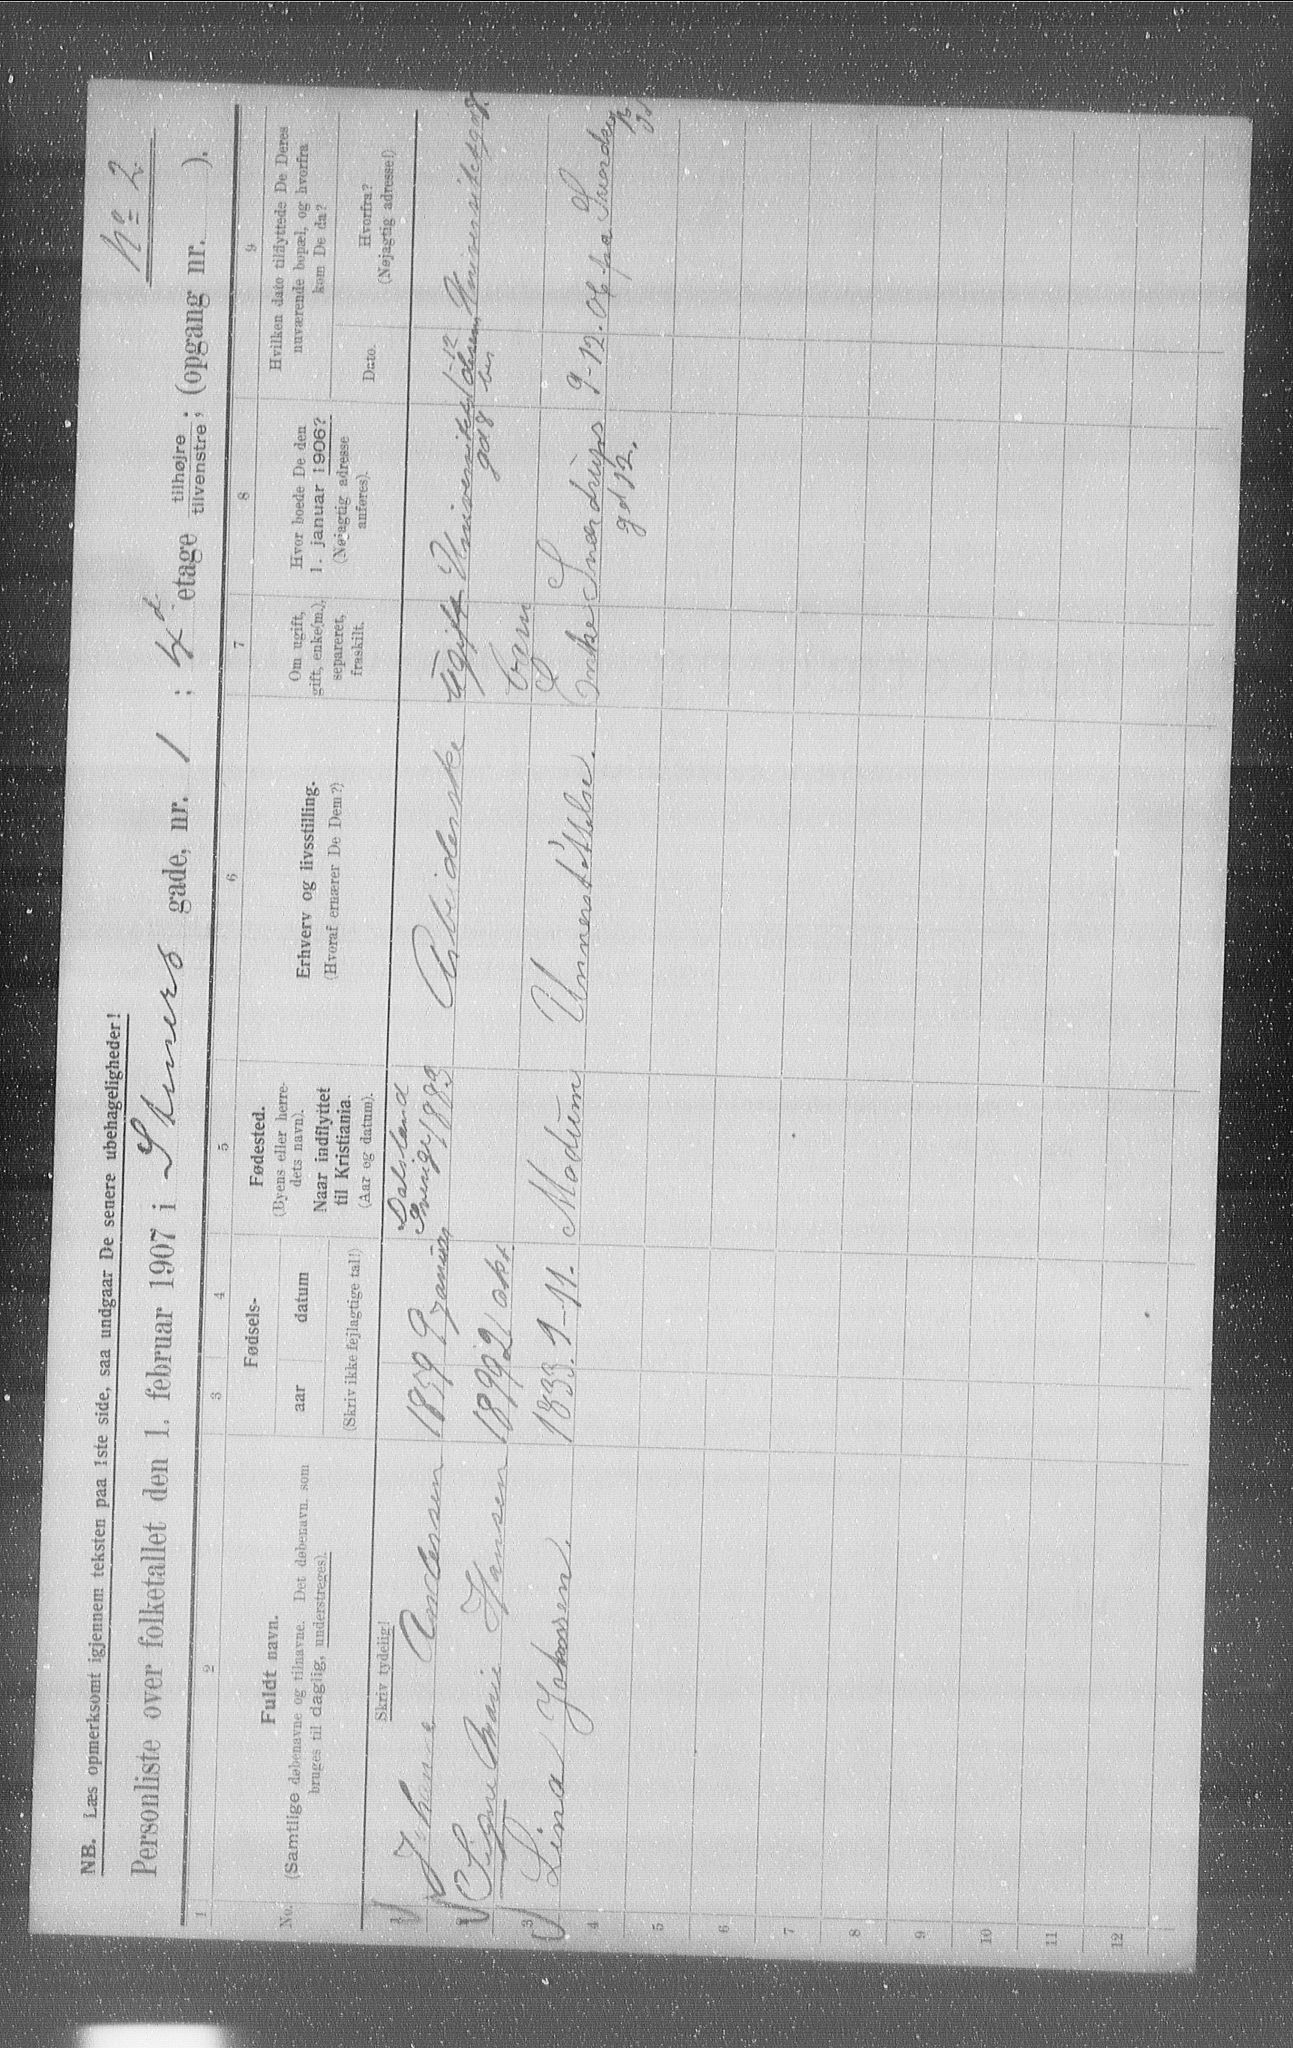 No 2
NB. Læs opmerksomt igjennem teksten paa 1ste side, saa undgaar De senere ubehageligheder!
Personliste over folketallet den 1. februar 1907 i Steners gade, nr. 1 ; 4d etage tilhøjre / tilvenstre ; (opgang nr. ).
1 2 3 4 5 6 7 8 9
No.
Fuldt navn.
(Samtlige døbenavne og tilnavne. Det døbenavn som
bruges til daglig, understreges).
Skriv tydelig!
Fødsels-
aar datum
(Skriv ikke fejlagtige tal!)
Fødested.
(Byens eller herre-
dets navn).
Naar indflyttet
til Kristiania.
(Aar og datum).
Erhverv og livsstilling.
(Hvoraf ernærer De Dem?)
Om ugift,
gift, enke(m.),
separeret,
fraskilt.
Hvor boede De den
1. januar 1906?
(Nøjagtig adresse
anføres).
Hvilken dato tilflyttede De Deres
nuværende bopæl, og hvorfra
kom De da?
Dato.
Hvorfra?
(Nøjagtig adresse!)
1 Johanne Andersen 1859 9 januar Dalsland Sverige 1883 Arbeiderske ugift Universitets gd 8 12 desem ber Universitedsgd 8.
2 Signe Marie Hansen 1899 21 okt. barn
3 Lina Jakossen. 1833. 9-11. Modum Unnerstøttelse. Enke Snardrups gd 12. 9-12. 06 fra
4
5
6
7
8
9
10
11
12